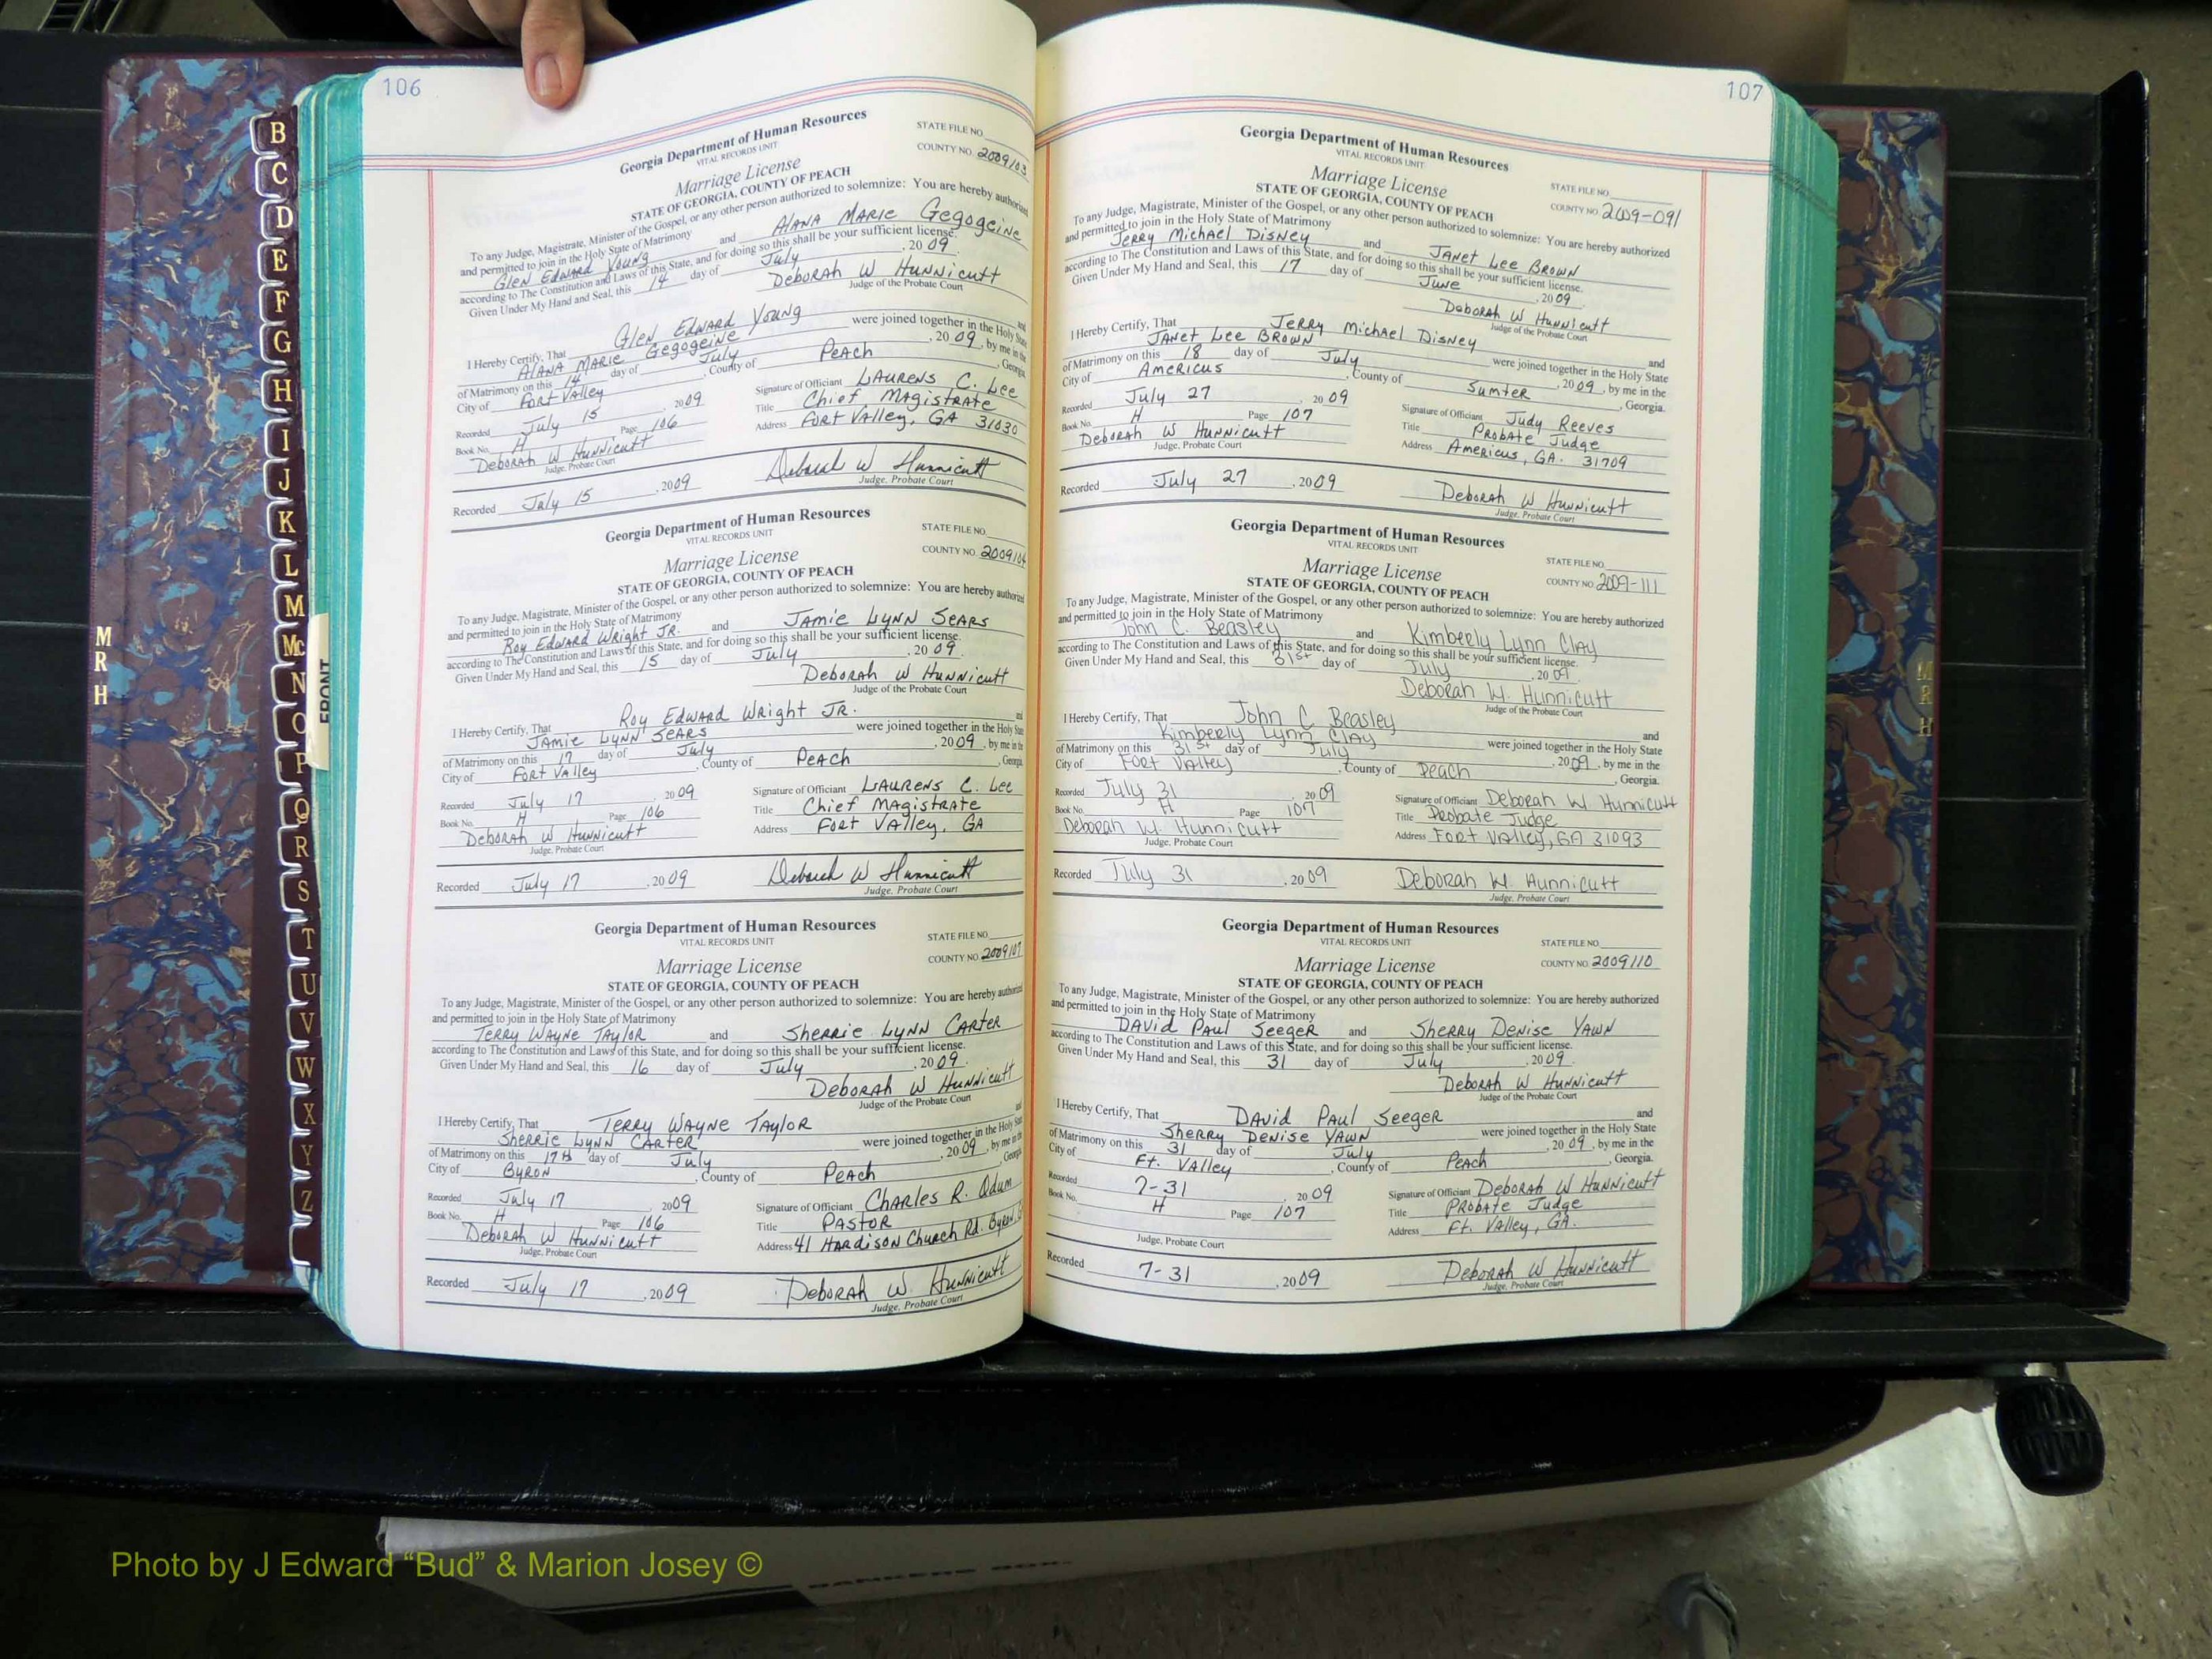 106
Georgia Department of Human Resources
VITAL RECORDS UNIT
STATE FILE NO.
COUNTY NO. 2009103
Marriage License
STATE OF GEORGIA, COUNTY OF PEACH
To any Judge, Magistrate, Minister of the Gospel, or any other person authorized to solemnize: You are hereby authorized
and permitted to join in the Holy State of Matrimony
Glen Edward Young and Alana Marie Gegogeine
according to The Constitution and Laws of this State, and for doing so this shall be your sufficient license.
Given Under My Hand and Seal, this 14 day of July , 2009
Deborah W Hunnicutt
Judge of the Probate Court
I Hereby Certify, That Glen Edward Young and
Alana Marie Gegogeine were joined together in the Holy State
of Matrimony on this 14 day of July , 2009 , by me in the
City of Fort Valley , County of Peach , Georgia
Recorded July 15 2009
Signature of Officiant Laurens C. Lee
Book No. H Page 106
Title Chief Magistrate
Deborah W Hunnicutt
Address Fort Valley, GA 31030
Judge, Probate Court
Recorded July 15 , 2009 Deborah W Hunnicutt
Judge, Probate Court
Georgia Department of Human Resources
VITAL RECORDS UNIT
STATE FILE NO.
COUNTY NO. 2009104
Marriage License
STATE OF GEORGIA, COUNTY OF PEACH
To any Judge, Magistrate, Minister of the Gospel, or any other person authorized to solemnize: You are hereby authorized
and permitted to join in the Holy State of Matrimony
Roy Edward Wright Jr. and Jamie Lynn Sears
according to The Constitution and Laws of this State, and for doing so this shall be your sufficient license.
Given Under My Hand and Seal, this 15 day of July , 2009
Deborah W Hunnicutt
Judge of the Probate Court
I Hereby Certify, That Roy Edward Wright Jr. and
Jamie Lynn Sears were joined together in the Holy State
of Matrimony on this 17 day of July , 2009 , by me in the
City of Fort Valley , County of Peach , Georgia
Recorded July 17 2009
Signature of Officiant Laurens C. Lee
Book No. H Page 106
Title Chief Magistrate
Deborah W Hunnicutt
Address Fort Valley, GA
Judge, Probate Court
Recorded July 17 , 2009 Deborah W Hunnicutt
Judge, Probate Court
Georgia Department of Human Resources
VITAL RECORDS UNIT
STATE FILE NO.
COUNTY NO. 2009107
Marriage License
STATE OF GEORGIA, COUNTY OF PEACH
To any Judge, Magistrate, Minister of the Gospel, or any other person authorized to solemnize: You are hereby authorized
and permitted to join in the Holy State of Matrimony
Terry Wayne Taylor and Sherrie Lynn Carter
according to The Constitution and Laws of this State, and for doing so this shall be your sufficient license.
Given Under My Hand and Seal, this 16 day of July , 2009
Deborah W Hunnicutt
Judge of the Probate Court
I Hereby Certify, That Terry Wayne Taylor and
Sherrie Lynn Carter were joined together in the Holy State
of Matrimony on this 17th day of July , 2009 , by me in the
City of Byron , County of Peach Georgia
Recorded July 17 2009
Signature of Officiant Charles R. Odum
Book No. H Page 106
Title Pastor
Deborah W Hunnicutt
Address 41 Hardison Church Rd. Byron,
Judge, Probate Court
Recorded July 17 , 2009 Deborah W. Hunnicutt
Judge, Probate Court
107
Georgia Department of Human Resources
VITAL RECORDS UNIT
Marriage License
STATE FILE NO.
STATE OF GEORGIA, COUNTY OF PEACH
COUNTY NO. 2009-091
To any Judge, Magistrate, Minister of the Gospel, or any other person authorized to solemnize: You are hereby authorized
and permitted to join in the Holy State of Matrimony
Jerry Michael Disney and Janet Lee Brown
according to The Constitution and Laws of this State, and for doing so this shall be your sufficient license.
Given Under My Hand and Seal, this 17 day of June , 2009
Deborah W Hunnicutt
Judge of the Probate Court
I Hereby Certify, That Jerry Michael Disney and
Janet Lee Brown were joined together in the Holy State
of Matrimony on this 18 day of July , 2009 , by me in the
City of Americus , County of Sumter , Georgia.
Recorded July 27 2009
Signature of Officiant Judy Reeves
Book No. H Page 107
Title Probate Judge
Deborah W Hunnicutt
Address Americus, GA. 31709
Judge, Probate Court
Recorded July 27 , 2009 Deborah W Hunnicutt
Judge, Probate Court
Georgia Department of Human Resources
VITAL RECORDS UNIT
STATE FILE NO.
Marriage License
COUNTY NO. 2009-111
STATE OF GEORGIA, COUNTY OF PEACH
To any Judge, Magistrate, Minister of the Gospel, or any other person authorized to solemnize: You are hereby authorized
and permitted to join in the Holy State of Matrimony
John C. Beasley and Kimberly Lynn Clay
according to The Constitution and Laws of this State, and for doing so this shall be your sufficient license.
Given Under My Hand and Seal, this 31st day of July , 2009
Deborah W. Hunnicutt
Judge of the Probate Court
I Hereby Certify, That John C Beasley and
Kimberly Lynn Clay were joined together in the Holy State
of Matrimony on this 31st day of July , 2009 , by me in the
City of Fort Valley , County of Peach , Georgia.
Recorded July 31 2009
Signature of Officiant Deborah W. Hunnicutt
Book No. H Page 107
Title Probate Judge
Deborah W. Hunnicutt
Address Fort Valley, GA 31093
Judge, Probate Court
Recorded July 31 , 2009 Deborah W. Hunnicutt
Judge, Probate Court
Georgia Department of Human Resources
VITAL RECORDS UNIT
STATE FILE NO.
COUNTY NO. 2009110
Marriage License
STATE OF GEORGIA, COUNTY OF PEACH
To any Judge, Magistrate, Minister of the Gospel, or any other person authorized to solemnize: You are hereby authorized
and permitted to join in the Holy State of Matrimony
David Paul Seeger and Sherry Denise Yawn
according to The Constitution and Laws of this State, and for doing so this shall be your sufficient license.
Given Under My Hand and Seal, this 31 day of July , 2009
Deborah W Hunnicutt
Judge of the Probate Court
I Hereby Certify, That David Paul Seeger and
Sherry Denise Yawn were joined together in the Holy State
of Matrimony on this 31 day of July , 2009 , by me in the
City of Ft. Valley , County of Peach , Georgia.
Recorded 7-31 2009
Signature of Officiant Deborah W Hunnicutt
Book No. H Page 107
Title Probate Judge
Address Ft. Valley, GA.
Judge, Probate Court
Recorded 7-31 , 2009 Deborah W Hunnicutt
Judge, Probate Court
B
C
D
E
F
G
H
I
J
K
L
M
Mc
N
O
P
Q
R
S
T
U
V
W
X
Y
Z
FRONT
M
R
H
M
R
H
Photo by J Edward “Bud” & Marion Josey ©